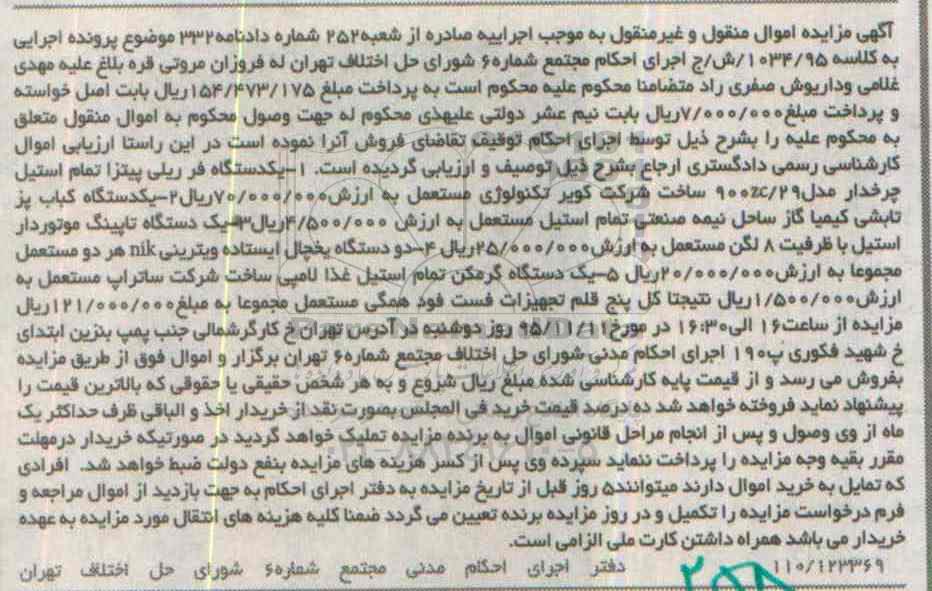 آگهی مزایده اموال منقول و غیرمنقول به موجب اجراییه صادره از شعبه۲۵۲ شماره دادنامه۳۳۲ موضوع پرونده اجرایی
به کلاسه ۱۰۳۴/۹۵/ش/ج اجرای احکام مجتمع شماره۶ شورای حل اختلاف تهران له فروزان مروتی قره بلاغ علیه مهدی
غلامی وداریوش صفری راد متضامنا محکوم علیه محکوم است به پرداخت مبلغ ۱۵۴/۴۷۳/۱۷۵ریال بابت اصل خواسته
و پرداخت مبلغ۷/۰۰۰/۰۰۰ریال بابت نیم عشر دولتی علیهذی محکوم له جهت وصول محکوم به اموال منقول متعلق
به محکوم علیه را بشرح ذیل توسط اجرای احکام توقیف تقاضای فروش آنرا نموده است در این راستا ارزیابی اموال
کارشناسی رسمی دادگستری ارجاع بشرح ذیل توصیف و ارزیابی گردیده است. ۱-یکدستگاه فر ریلی پیتزا تمام استیل
چرخدار مدل۹۰۰zc/۲۹ ساخت شرکت کویر تکنولوژی مستعمل به ارزش۷۰/۰۰۰/۰۰۰ریال۲-یکدستگاه کباب پز
تابشی کیمیا گاز ساحل نیمه صنعتی تمام استیل مستعمل به ارزش ۴/۵۰۰/۰۰۰ریال۳-یک دستگاه تاپینگ موتوردار
استیل با ظرفیت ۸ لگن مستعمل به ارزش۲۵/۰۰۰/۰۰۰ریال ۴-دو دستگاه یخچال ایستاده ویترینی nik هر دو مستعمل
مجموعا به ارزش۲۰/۰۰۰/۰۰۰ریال ۵-یک دستگاه گرمکن تمام استیل غذا لامپی ساخت شرکت ساتراپ مستعمل به
ارزش۱/۵۰۰/۰۰۰ریال نتیجتا کل پنج قلم تجهیزات فست فود همگی مستعمل مجموعا به مبلغ۱۲۱/۰۰۰/۰۰۰ریال
مزایده از ساعت۱۶ الی۱۶:۳۰ در مورخ۹۵/۱۱/۱۱ روز دوشنبه در آدرس تهران خ کارگرشمالی جنب پمپ بنزین ابتدای
خ شهید فکوری پ۱۹۰ اجرای احکام مدنی شورای حل اختلاف مجتمع شماره۶ تهران برگزار و اموال فوق از طریق مزایده
بفروش می رسد و از قیمت پایه کارشناسی شده مبلغ ریال شروع و به هر شخص حقیقی یا حقوقی که بالاترین قیمت را
پیشنهاد نماید فروخته خواهد شد ده درصد قیمت خرید فی المجلس بصورت نقد از خریدار اخذ و الباقی ظرف حداکثر یک
ماه از وی وصول و پس از انجام مراحل قانونی اموال به برنده مزایده تملیک خواهد گردید در صورتیکه خریدار درمهلت
مقرر بقیه وجه مزایده را پرداخت ننماید سپرده وی پس از کسر هزینه های مزایده بنفع دولت ضبط خواهد شد. افرادی
که تمایل به خرید اموال دارند میتوانند۵ روز قبل از تاریخ مزایده به دفتر اجرای احکام به جهت بازدید از اموال مراجعه و
فرم درخواست مزایده را تکمیل و در روز مزایده برنده تعیین می گردد ضمنا کلیه هزینه های انتقال مورد مزایده به عهده
خریدار می باشد همراه داشتن کارت ملی الزامی است.
۱۱۰/۱۲۳۳۶۹ دفتر اجرای احکام مدنی مجتمع شماره۶ شورای حل اختلاف تهران